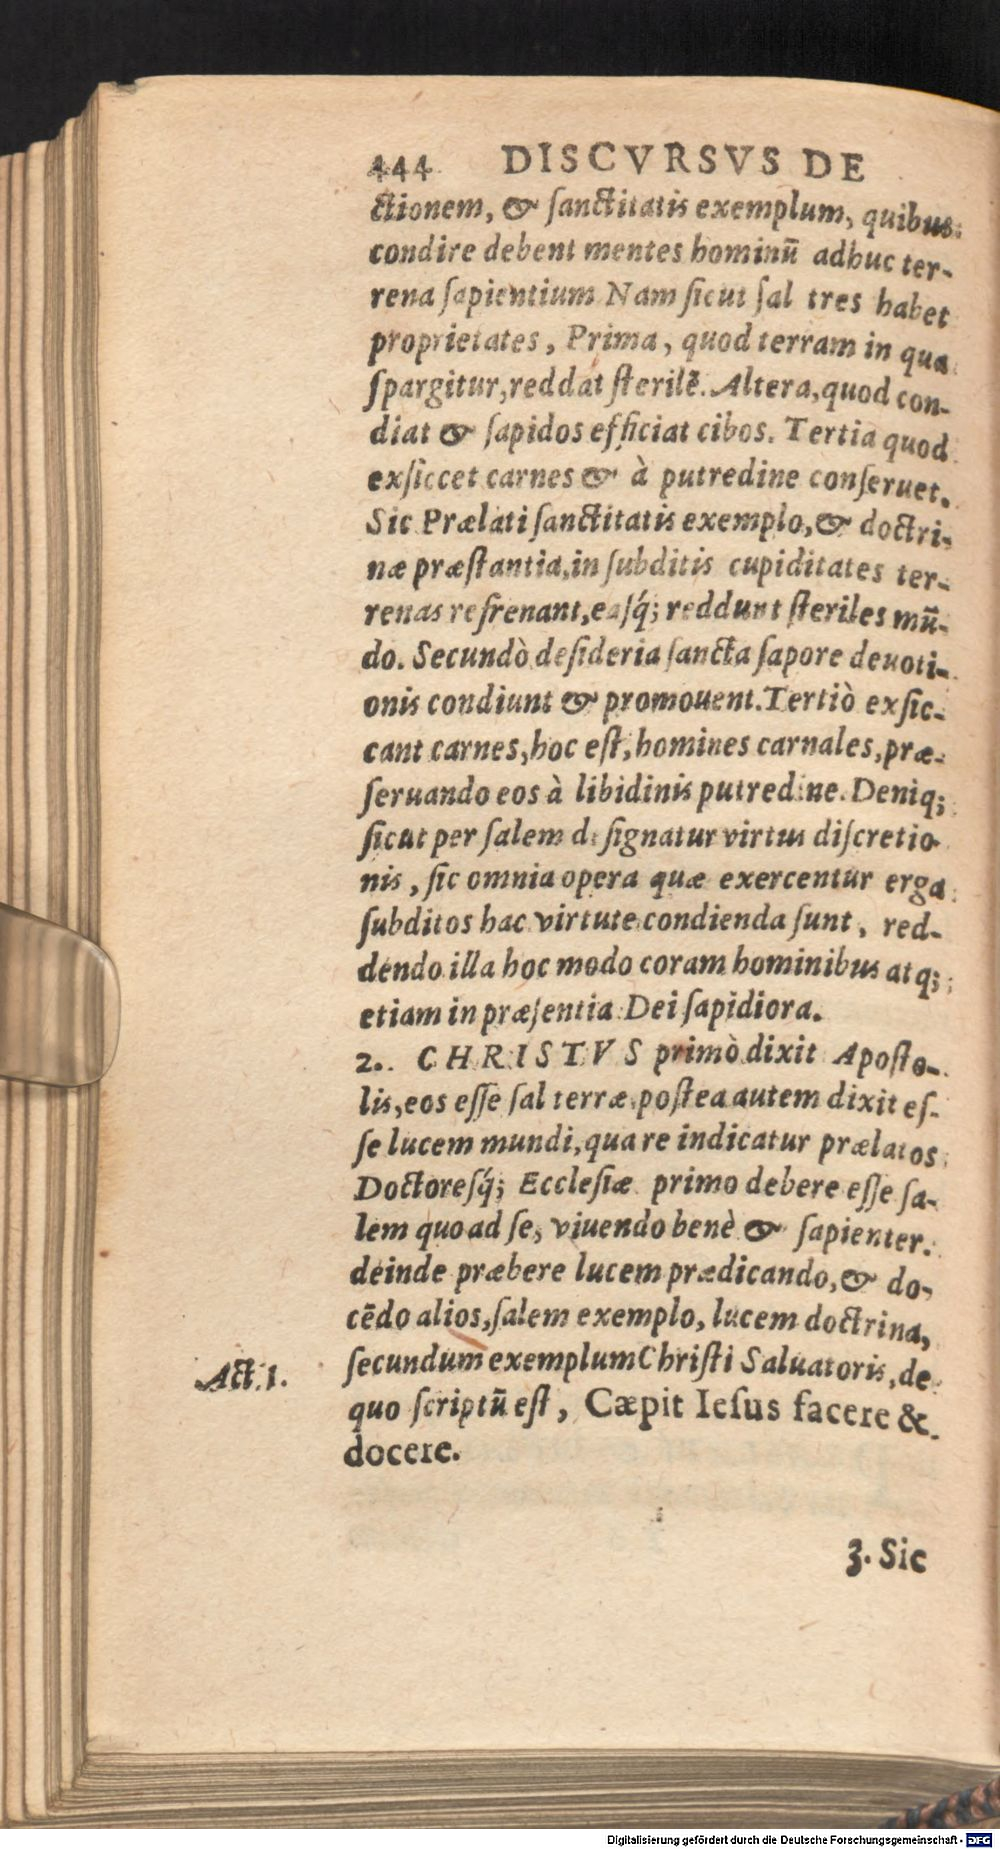 444 DISCVRSVS DE
ctionem, & ſanctitatis exemplum, quibus
condire debent mentes hominū adhuc ter-
rena ſapientium Nam ſicut ſal tres habet
proprietates, Prima, quod terram in qua
ſpargitur, reddat ſterilē. Altera, quod con-
diat & ſapidos efficiat cibos. Tertia quod
exſiccet carnes & à putredine conſeruet.
Sic Prælati ſanctitatis exemplo, & doctri-
næ præſtantia, in ſubditis cupiditates ter-
renas refrenant, eaſq́; reddunt ſteriles mū-
do. Secundò deſideria ſancta ſapore deuoti-
onis condiunt & promouent. Tertiò exſic-
cant carnes, hoc eſt, homines carnales, præ-
ſeruando eos à libidinis putredine. Deniq;
ſicut per ſalem deſignatur virtus diſcretio-
nis, ſic omnia opera quæ exercentur erga
ſubditos hac virtute condienda ſunt, red-
dendo illa hoc modo coram hominibus atq;
etiam in præſentia Dei ſapidiora.
2. CHRISTVS primò dixit Apoſto-
lis, eos eſſe ſal terræ, poſtea autem dixit eſ-
ſe lucem mundi, quare indicatur prælatos
Doctoreſq́; Eccleſiæ primo debere eſſe ſa-
lem quoad ſe, viuendo benè & ſapienter.
deinde præbere lucem prædicando, & do-
cēdo alios, ſalem exemplo, lucem doctrina,
Act. 1. ſecundum exemplum Chriſti Saluatoris, de
quo ſcriptū eſt, Cæpit Ieſus facere &
docere.
3. Sic
Digitalisierung gefördert durch die Deutsche Forschungsgemeinschaft - DFG